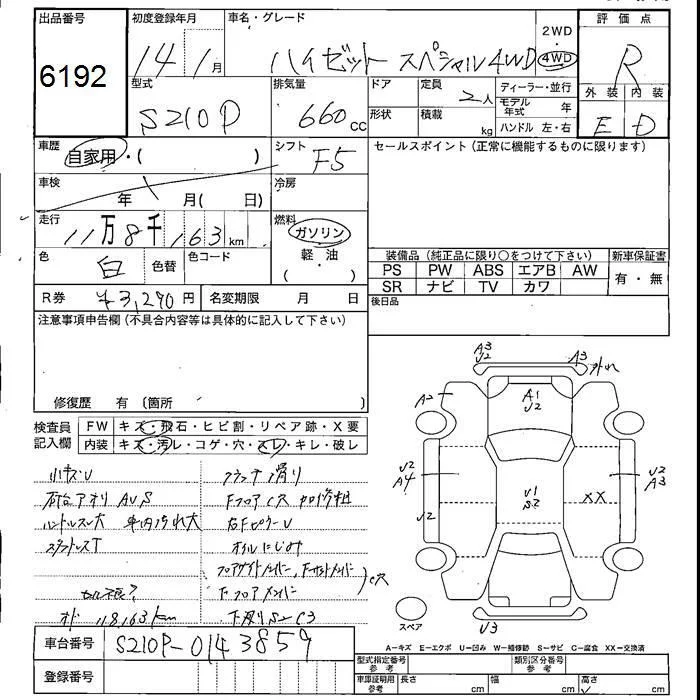 出品番号
6192
初度登録年月
14 1月
車名・グレード
ハイゼット スペシャル4WD
2WD
4WD
評価点
R
外装 内装
E D
型式
S210P
排気量
660cc
ドア
形状
定員
2人
積載
kg
ディーラー・並行
モデル年式 年
ハンドル 左・右
車歴
自家用・( )
シフト
F5
セールスポイント (正常に機能するものに限ります)
車検
年 月(日)
冷房
走行
11万8千163km
燃料
ガソリン
軽・油
( )
色
白
色替
色コード
装備品 (純正品に限り○をつけて下さい)
PS PW ABS エアB AW
SR ナビ TV カワ
新車保証書
有・無
R券
¥3,290円
名変期限 月 日
後日品
注意事項申告欄 (不具合内容等は具体的に記入して下さい)
修復歴 有 (箇所 )
検査員記入欄
FW キズ・飛石・ヒビ割・リペア跡・X要
内装 キズ・汚レ・コゲ・穴・スレ・キレ・破レ
小キズU
荷台アオリ AUS
ハンドルスレ大 車内汚れ大
スタットレスT
118,163km
クラッチ滑り
オイルにじみ
下廻りS-C3
A3
U2
A3
外れ
A2
A1
U2
U2
A4
U2
U1
S2
XX
U2
A3
U3
スペア
A−キズ E−エクボ U−凹み W−補修跡 S−サビ C−腐食 XX−交換済
車台番号
S210P-0143859
登録番号
型式指定番号
参考
類別区分番号
参考
車庫証明用
参考
長さ cm
幅 cm
高さ cm